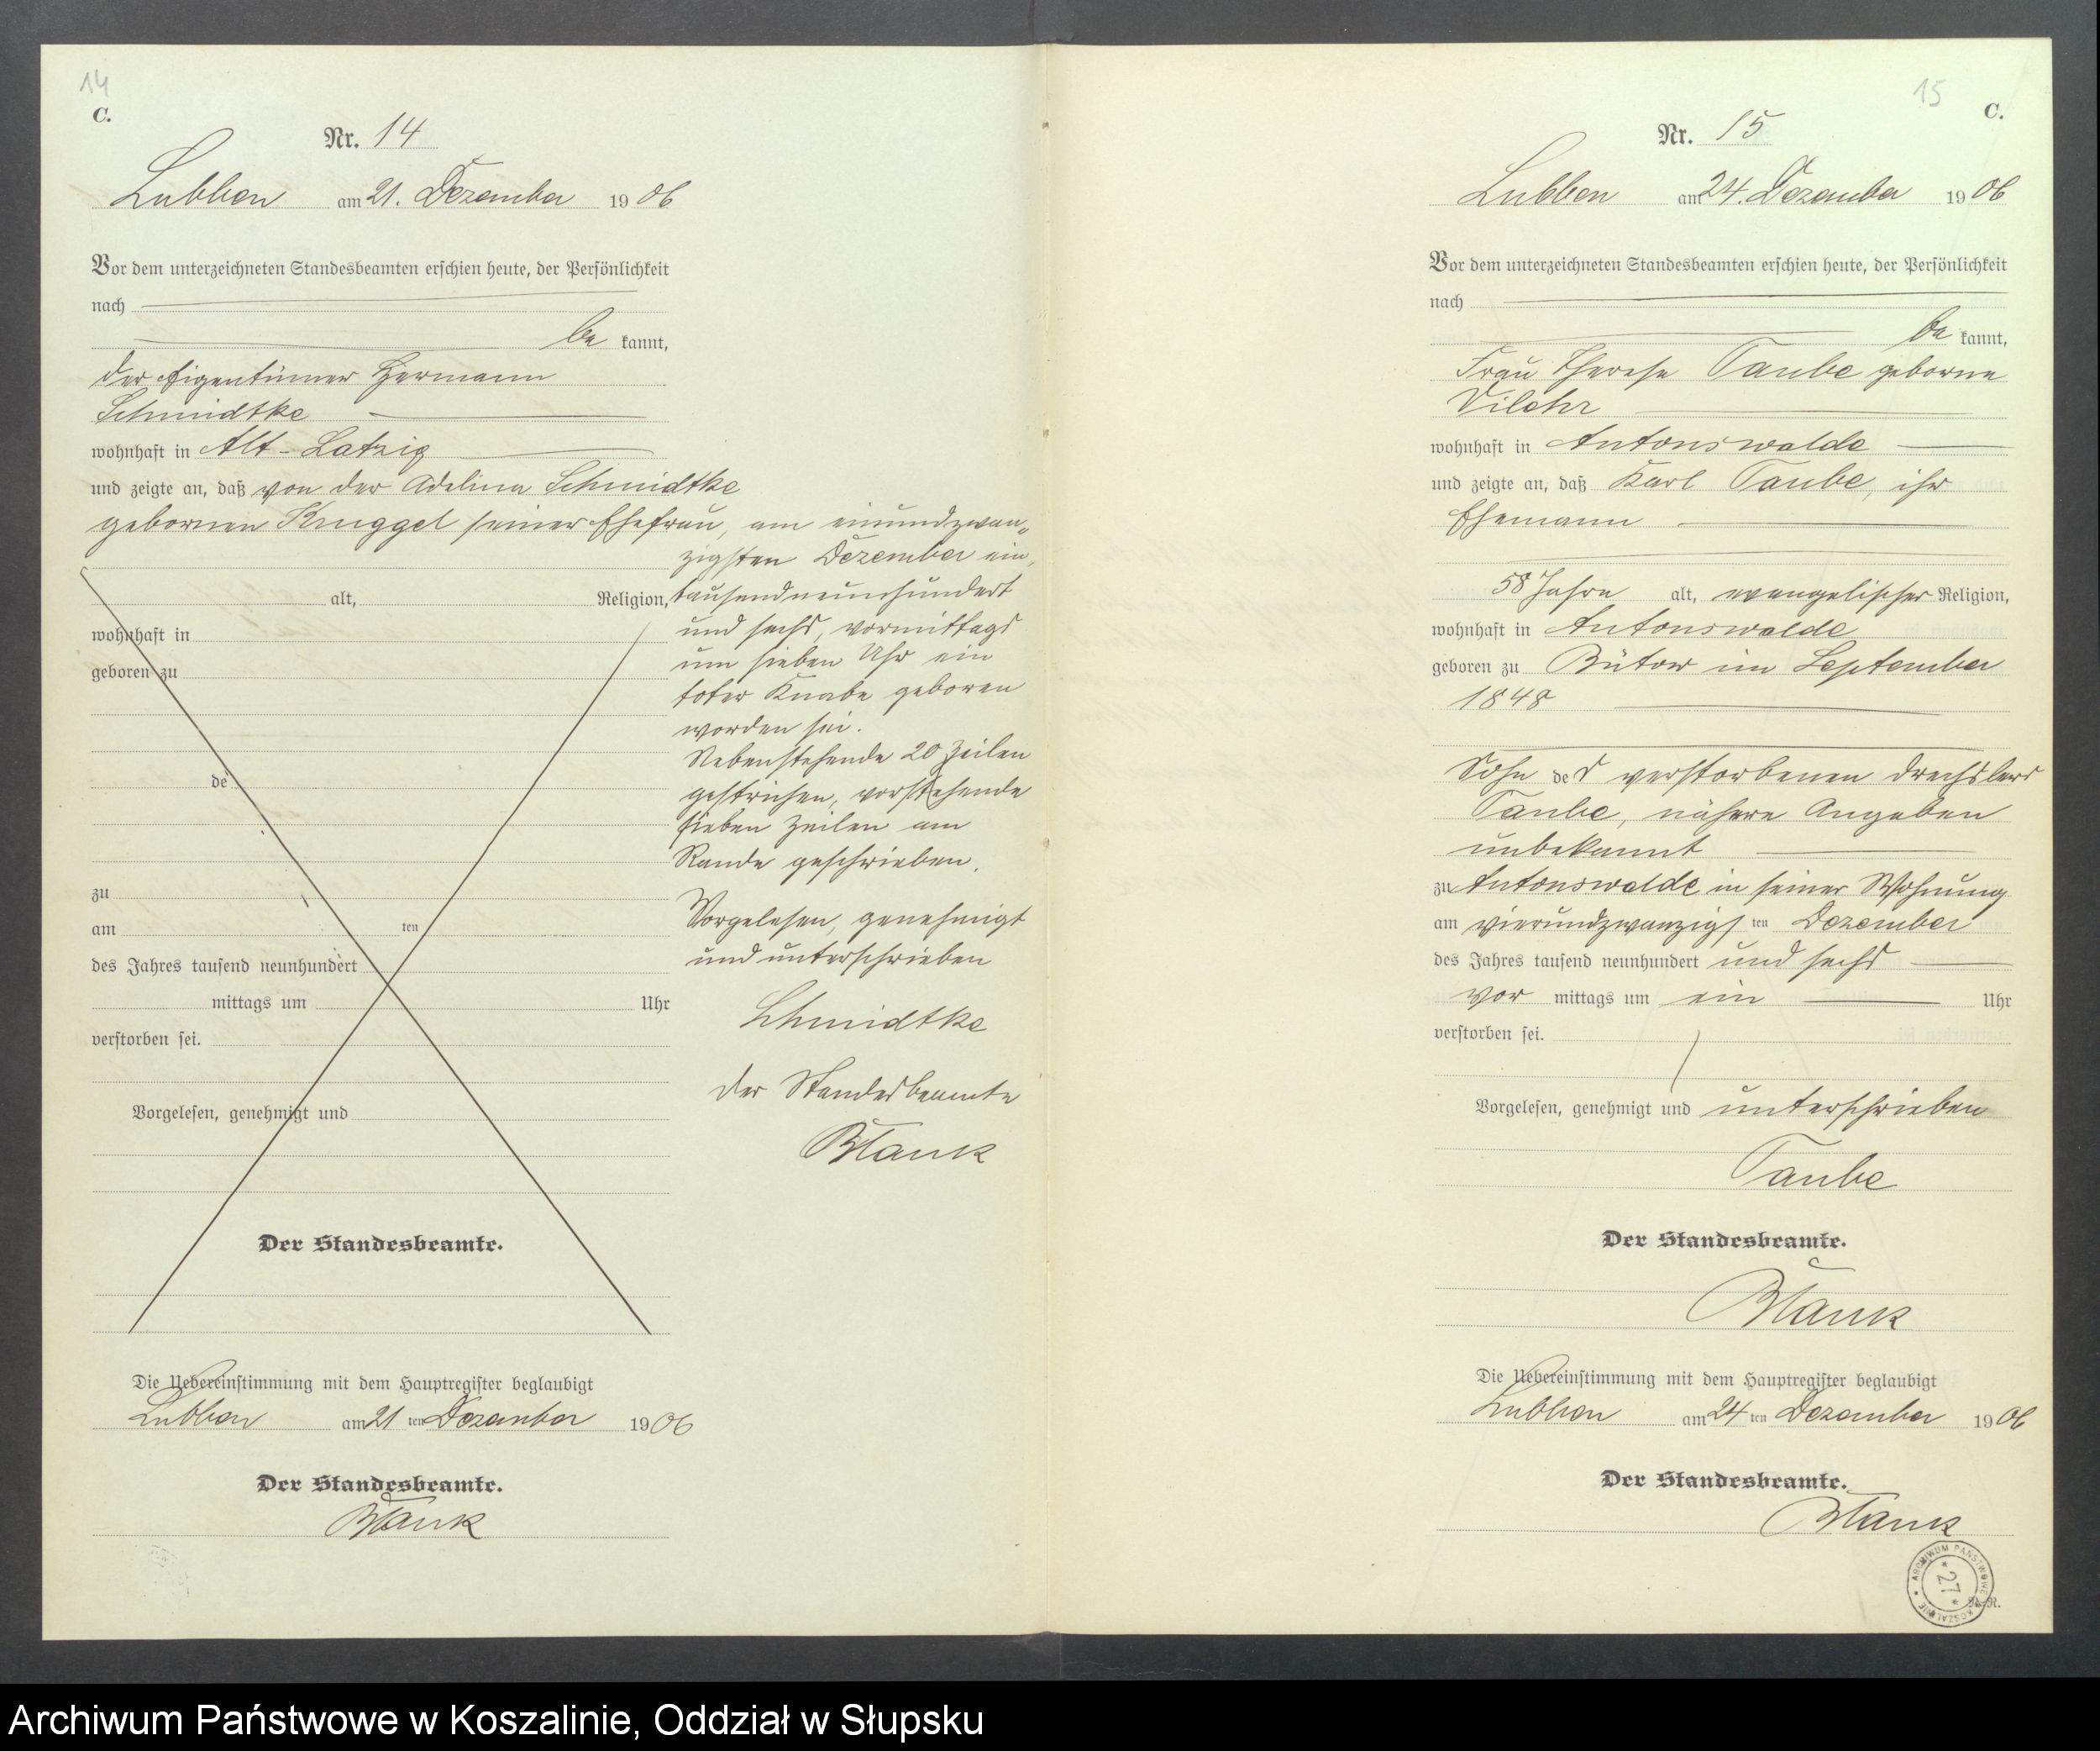 14
C.
Nr. 14
Lubben am 21. Dezember 1906
Vor dem unterzeichneten Standesbeamten erschien heute, der Persönlichkeit
nach
be kannt,
der Eigentümer Hermann
Schmidtke
wohnhaft in Alt-Latzig
und zeigte an, daß von der Adeline Schmidtke
gebornen Kruggel seiner Ehefrau, am einundzwan„
zigsten Dezember ein„
tausendneunhundert
und sechs, vormittags
um sieben Uhr ein
toter Knabe geboren
worden sei.
Nebenstehende 20 Zeilen
gestrichen, vorstehende
sieben Zeilen am
Rande geschrieben.
Vorgelesen, genehmigt
und unterschrieben
Schmidtke
Der Standesbeamte
Blank
alt, Religion,
wohnhaft in
geboren zu
de
zu
am ten
des Jahres tausend neunhundert
mittags um Uhr
verstorben sei.
Vorgelesen, genehmigt und
Der Standesbeamte.
Die Uebereinstimmung mit dem Hauptregister beglaubigt
Lubben am 21 ten Dezember 1906
Der Standesbeamte.
Blank
15
C.
Nr. 15
Lubben am 24. Dezember 1906
Vor dem unterzeichneten Standesbeamten erschien heute, der Persönlichkeit
nach
be kannt,
Frau Therese Taube geborne
wohnhaft in Antonswalde
und zeigte an, daß Karl Taube, ihr
Ehemann
58 Jahre alt, evangelischer Religion,
wohnhaft in Antonswalde
geboren zu Bütow im September
1848
Sohn des verstorbenen Drechslers
Taube, nähere Angaben
unbekannt
zu Antonswalde in seiner Wohnung
am vierundzwanzigs ten Dezember
des Jahres tausend neunhundert und sechs
vor mittags um ein Uhr
verstorben sei.
Vorgelesen, genehmigt und unterschrieben
Taube
Der Standesbeamte.
Blank
Die Uebereinstimmung mit dem Hauptregister beglaubigt
Lubben am 24 ten Dezember 1906
Der Standesbeamte.
Blank
ARCHIWUM PAŃSTWOWE W KOSZALINIE
* 27 *
Archiwum Państwowe w Koszalinie, Oddział w Słupsku